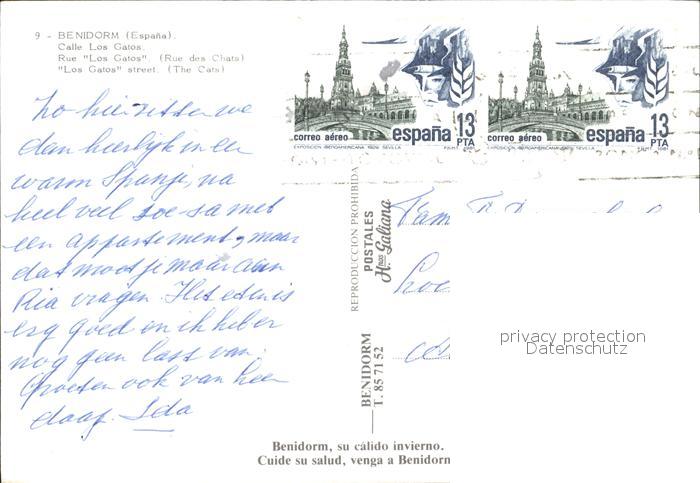 9 - BENIDORM (España).
Calle Los Gatos.
Rue "Los Gatos". (Rue des Chats)
"Los Gatos" street. (The Cats)
Zo hier zitten we
dan heerlijk in een
warm Spanje, na
heel veel soesa met
een appartement, maar
dat moet je maar aan
Ria vragen. Het eten is
erg goed en ik heb er
nog geen last van.
Groeten ook van heer
daag. Ida
correo aéreo españa 13 PTA
EXPOSICION IBEROAMERICANA 1929 SEVILLA F.N.M.T. 1981
correo aéreo españa 13 PTA
EXPOSICION IBEROAMERICANA 1929 SEVILLA F.N.M.T. 1981
REPRODUCCION PROHIBIDA
POSTALES
Hnos Galiana
BENIDORM
T. 85 71 52
Fam
privacy protection
Datenschutz
Benidorm, su cálido invierno.
Cuide su salud, venga a Benidorm